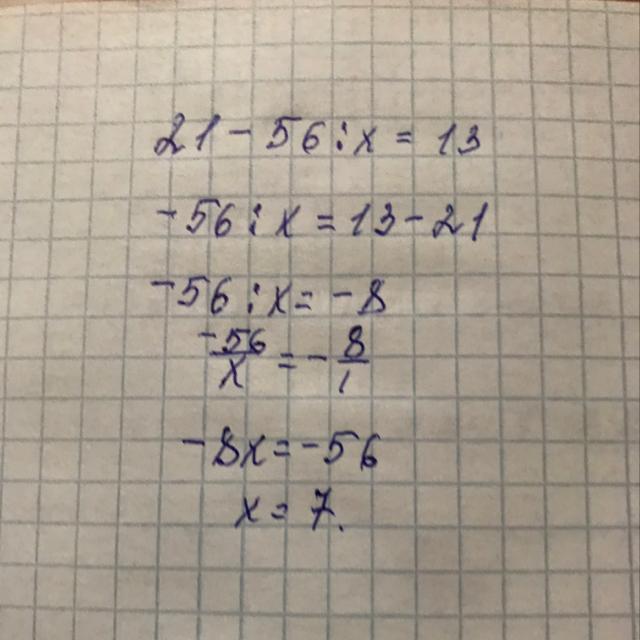 21 - 56 : x = 13
-56 : x = 13 - 21
-56 : x = -8
-56/x = -8/1
-8x = -56
x = 7.